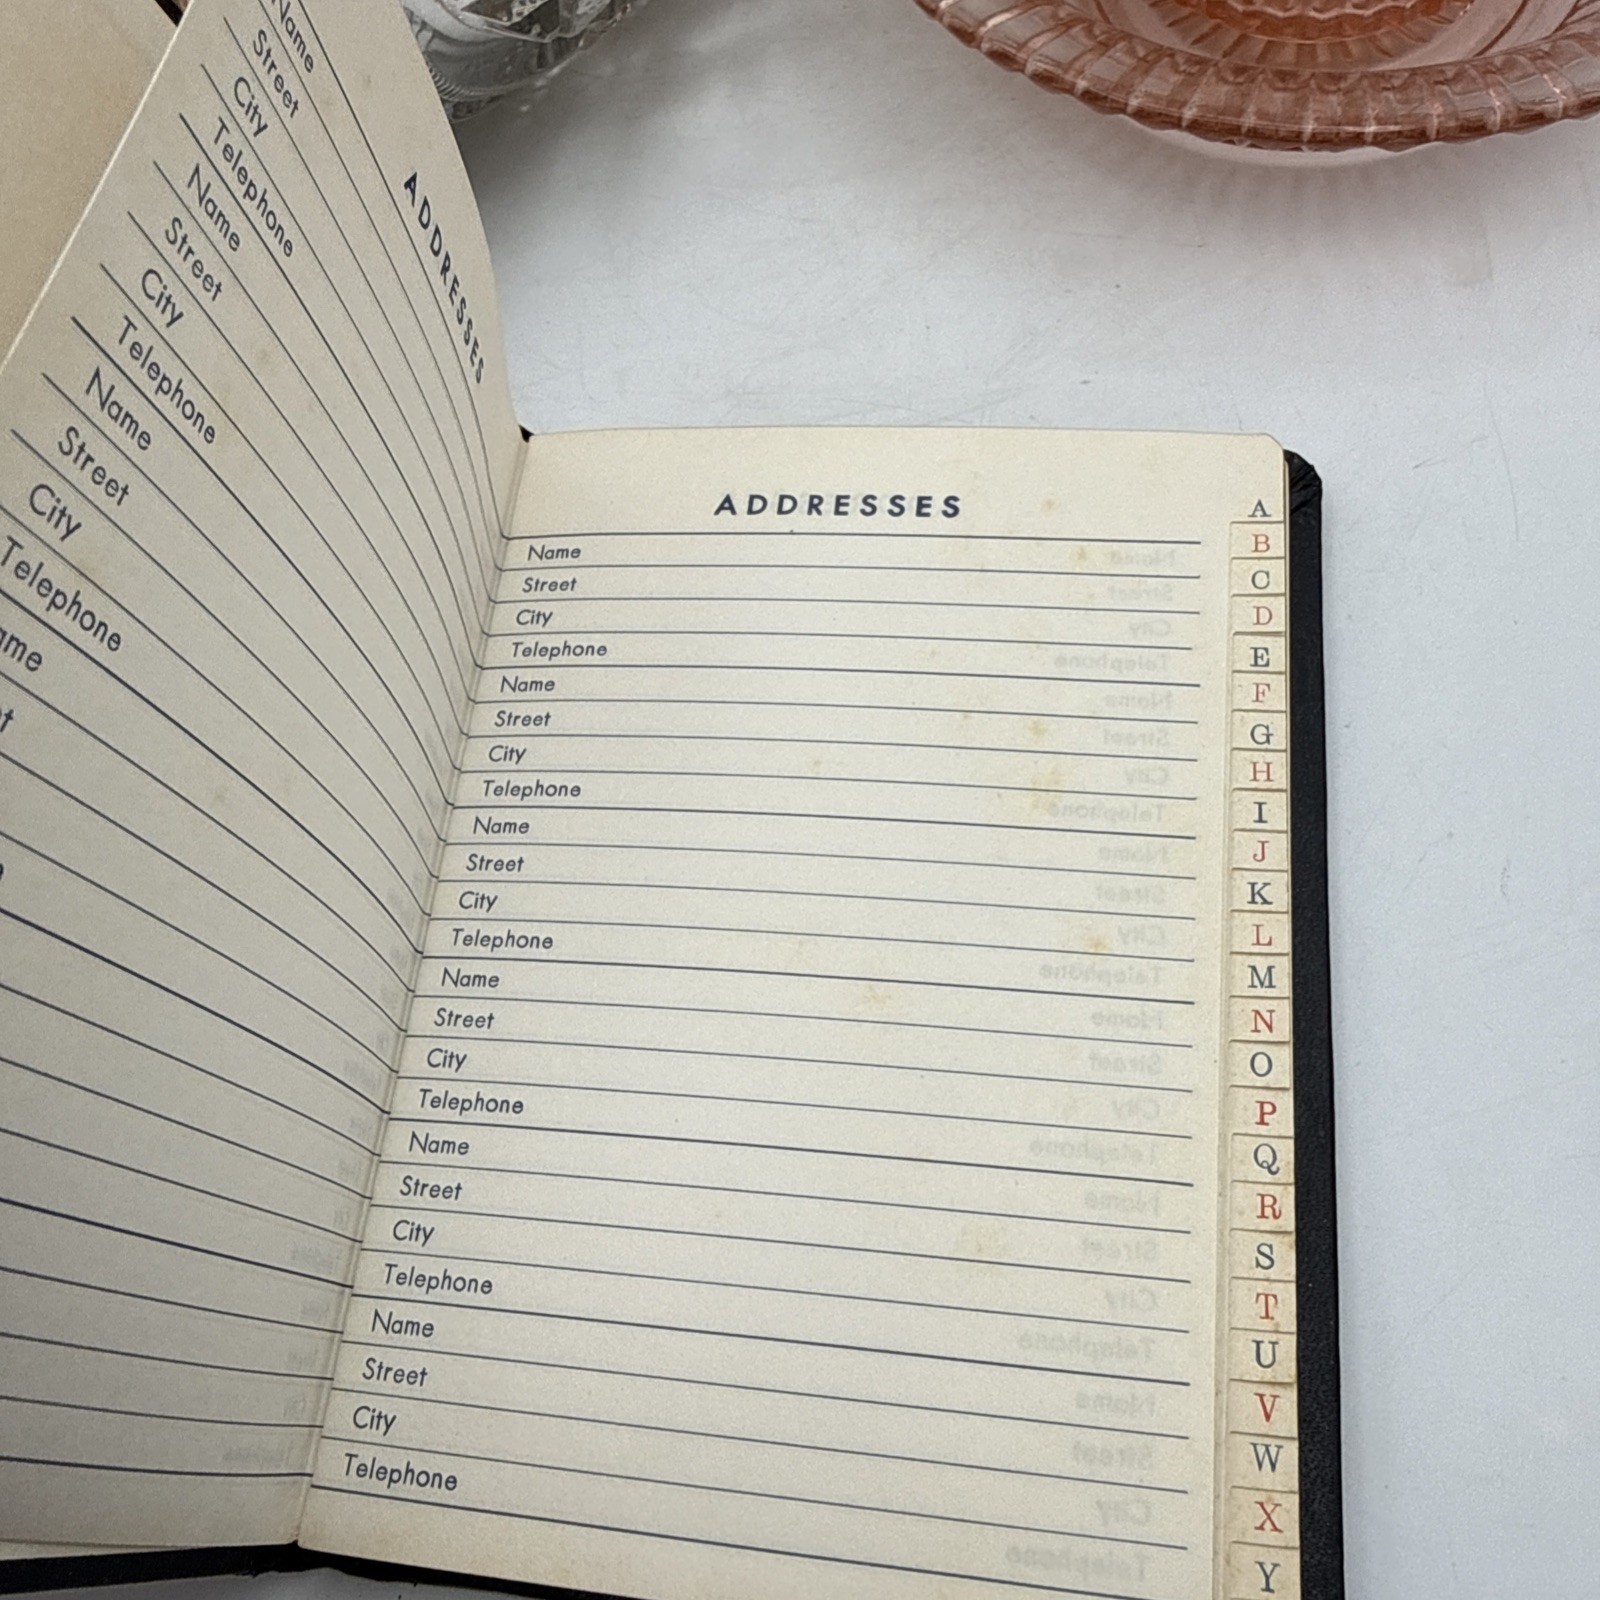 Name
Street
City
Telephone
Name
Street
City
Telephone
Name
Street
City
Telephone
ADDRESSES
ADDRESSES
Name
Street
City
Telephone
Name
Street
City
Telephone
Name
Street
City
Telephone
Name
Street
City
Telephone
Name
Street
City
Telephone
Name
Street
City
Telephone
A
B
C
D
E
F
G
H
I
J
K
L
M
N
O
P
Q
R
S
T
U
V
W
X
Y